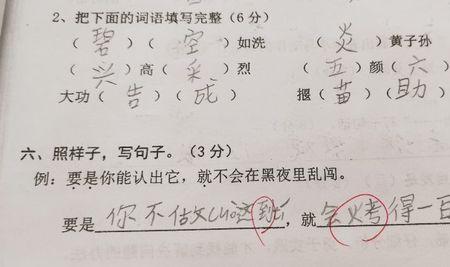 2、把下面的词语填写完整（6分）
（碧）（空）如洗 （炎）黄子孙
（兴）高（采）烈 （五）颜（六）
大功（告）（成） 揠（苗）（助）
六、照样子，写句子。（3分）
例：要是你能认出它，就不会在黑夜里乱闯。
要是你不做这，就会火考得一百